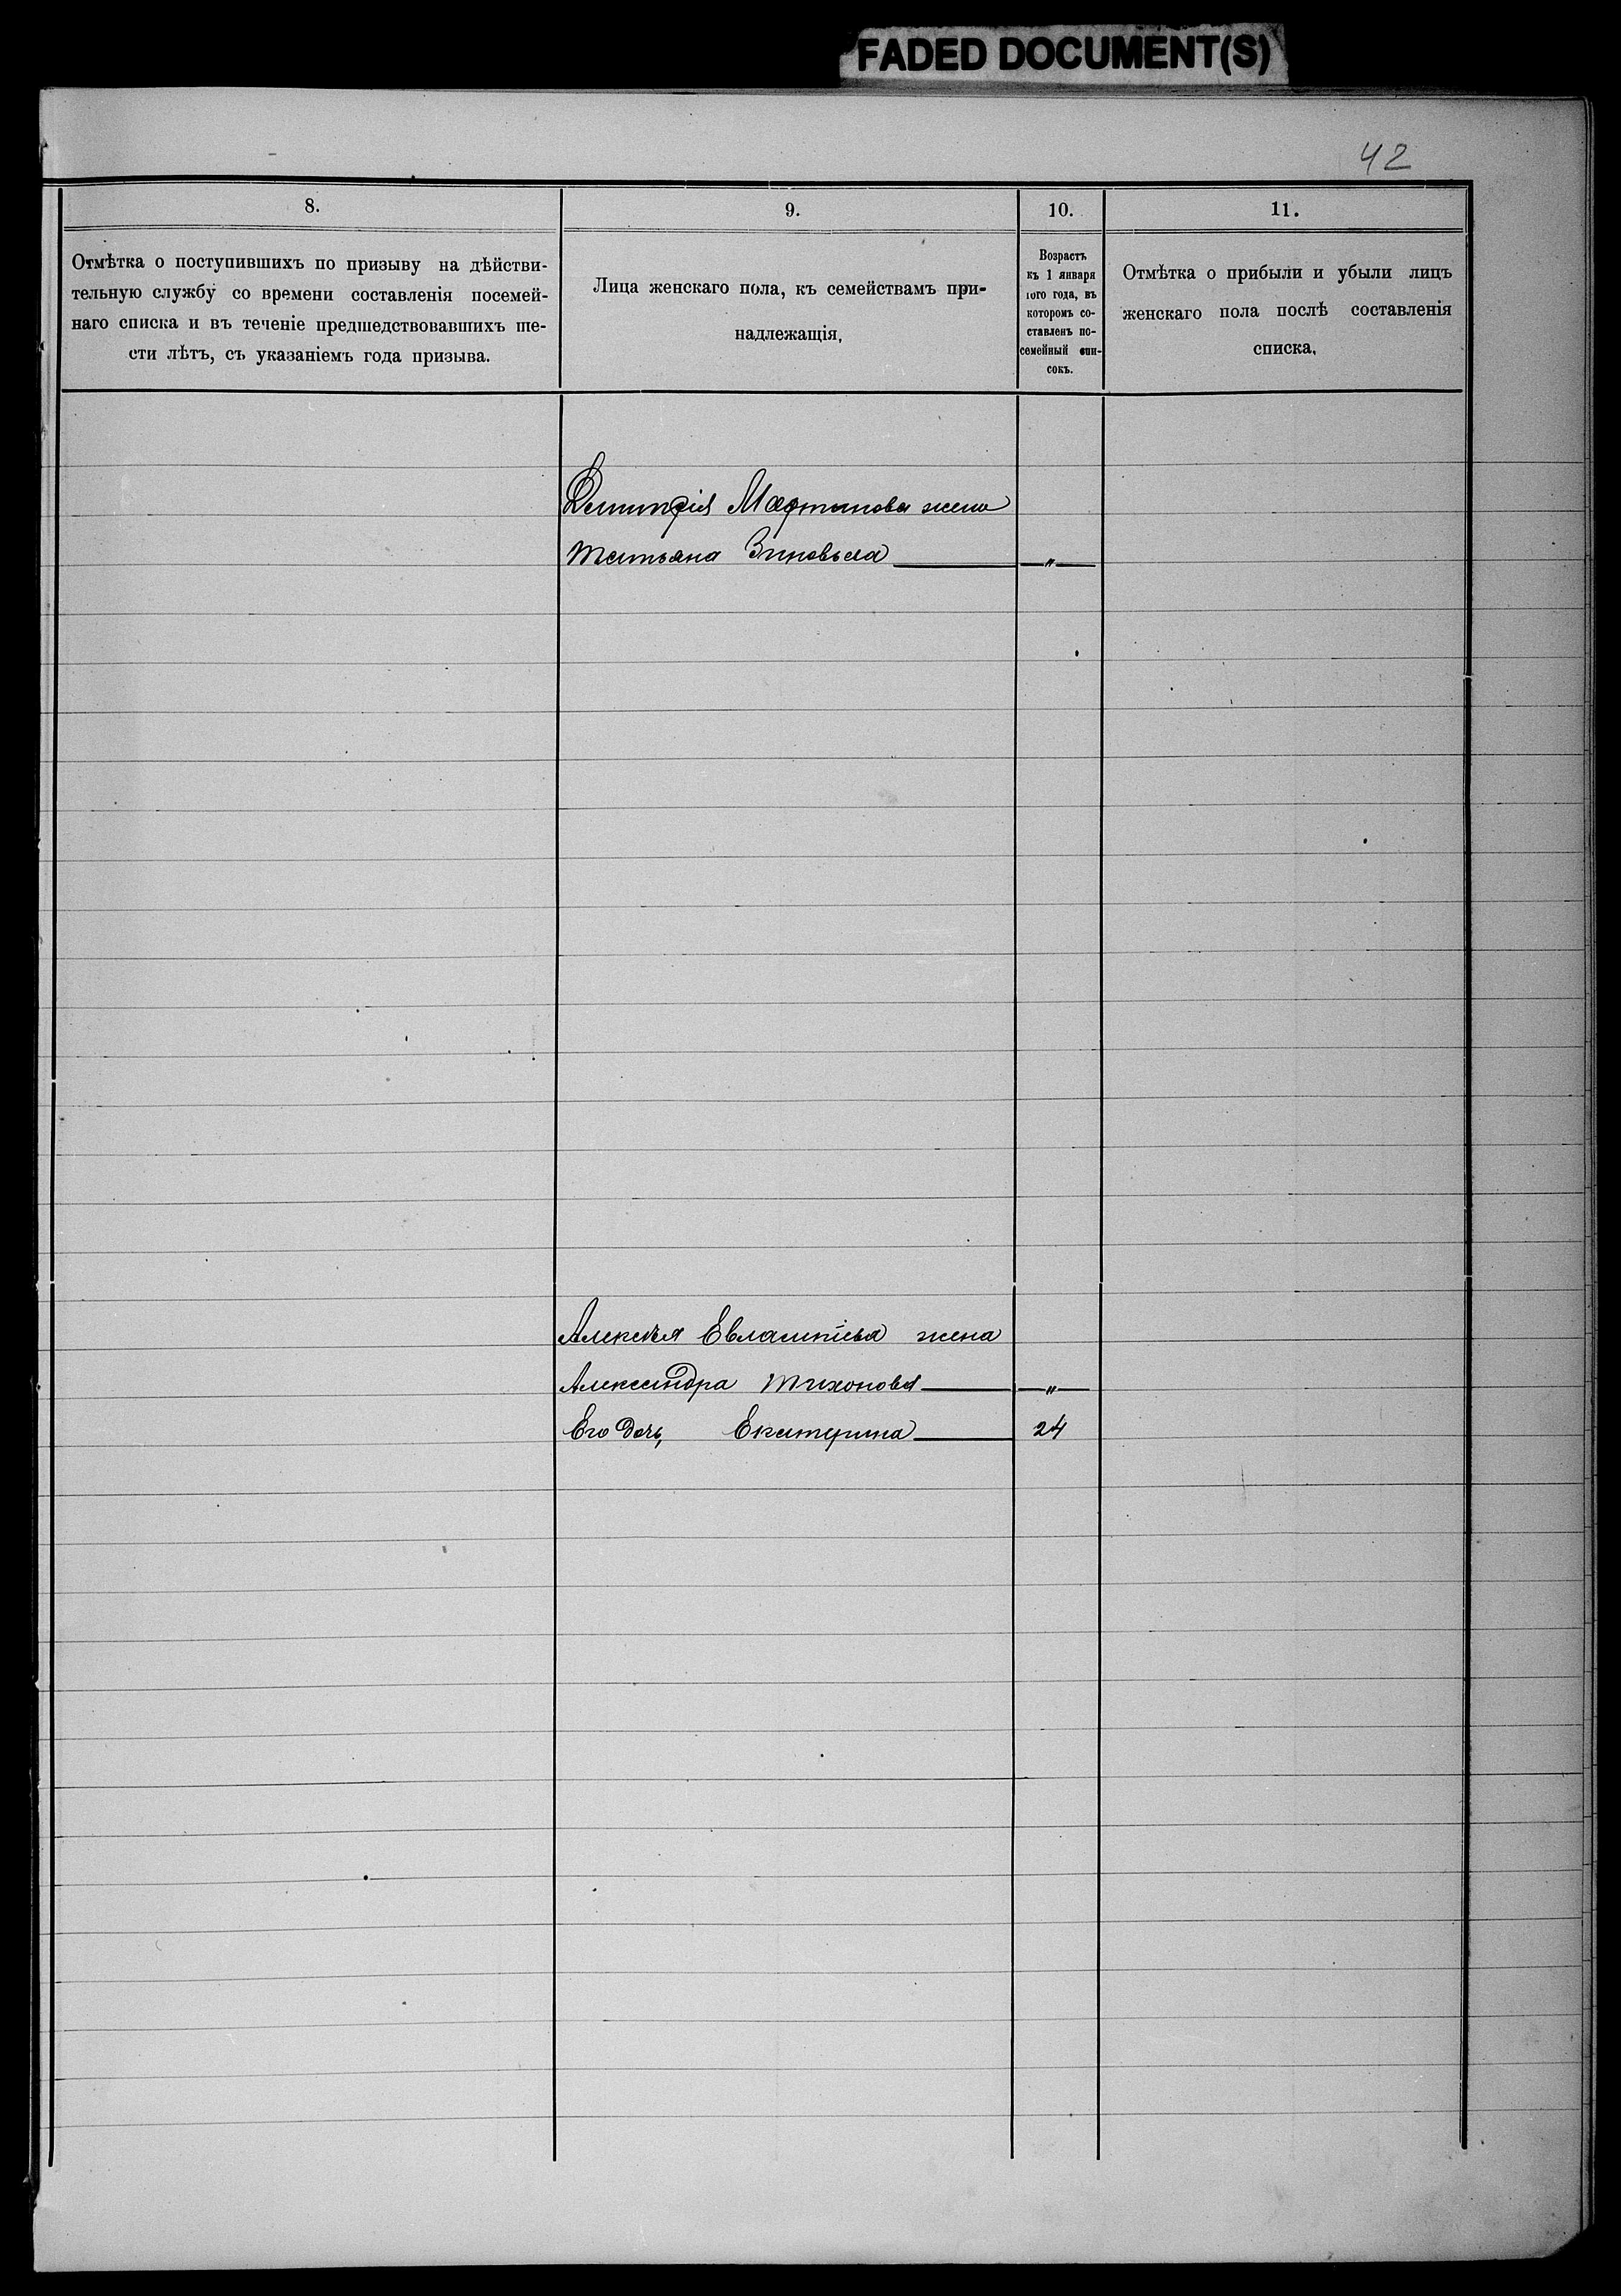 FADED DOCUMENT(S)
42
8.
Отмѣтка о поступившихъ по призыву на дѣйстви-
тельную службу со времени составленія посемей-
наго списка и въ теченіе предшедствовавшихъ ше-
сти лѣтъ, съ указаніемъ года призыва.
9.
Лица женскаго пола, къ семействамъ при-
надлежащія,
10.
Возрастъ
къ 1 января
того года, въ
которомъ со-
ставленъ по-
семейный спи-
сокъ.
11.
Отмѣтка о прибыли и убыли лицъ
женскаго пола послѣ составленія
списка.
Димитрія Мартынова жена
Татьяна Зиновьева — „ —
Алексѣя Евлампіева жена
Александра Тихонова — „ —
Его дочь, Екатерина — 24